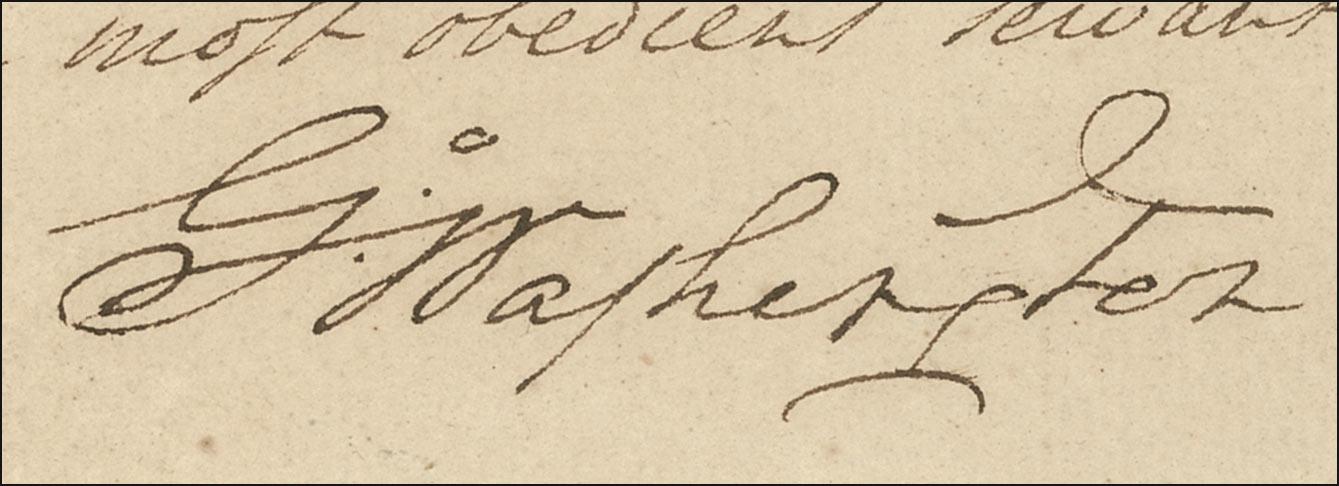 most obedient servant
G: Washington